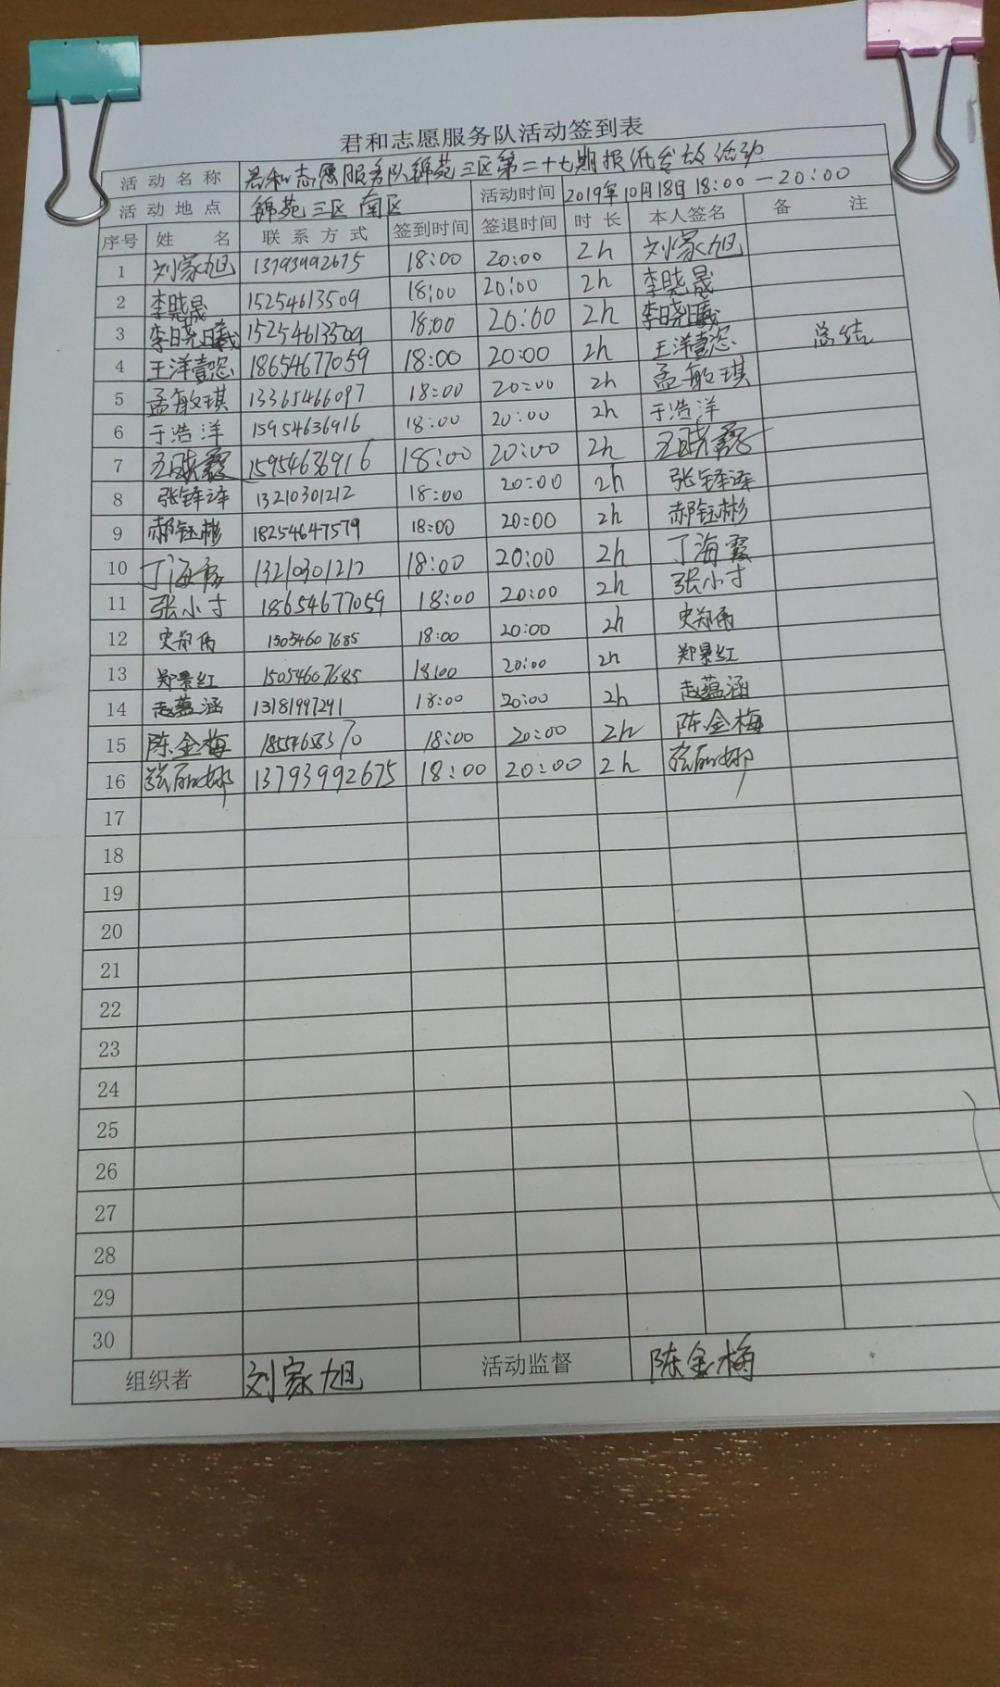 君和志愿服务队活动签到表
活动名称 君和志愿服务队锦苑三区第二十七期报纸发放活动
活动地点 锦苑三区南区 活动时间 2019年10月18日 18:00-20:00
序号 姓名 联系方式 签到时间 签退时间 时长 本人签名 备注
1 刘家旭 13793992675 18:00 20:00 2h 刘家旭
2 李晓晟 15254613509 18:00 20:00 2h 李晓晟
3 李晓曦 15254613509 18:00 20:00 2h 李晓曦
4 王洋壹恣 18654677059 18:00 20:00 2h 王洋壹恣 总结
5 孟敏琪 13365466097 18:00 20:00 2h 孟敏琪
6 于浩洋 15954636916 18:00 20:00 2h 于浩洋
7 15954636916 18:00 20:00 2h
8 张铎泽 13210301212 18:00 20:00 2h 张铎泽
9 郝钰彬 18254647579 18:00 20:00 2h 郝钰彬
10 丁海霞 13210301212 18:00 20:00 2h 丁海霞
11 张小寸 18654677059 18:00 20:00 2h 张小寸
12 史郑雨 15054607685 18:00 20:00 2h 史郑雨
13 郑景红 15054607685 18:00 20:00 2h 郑景红
14 赵蕴涵 13181997291 18:00 20:00 2h 赵蕴涵
15 陈金梅 18:00 20:00 2h 陈金梅
16 张丽娜 13793992675 18:00 20:00 2h 张丽娜
17
18
19
20
21
22
23
24
25
26
27
28
29
30
组织者 刘家旭 活动监督 陈金梅